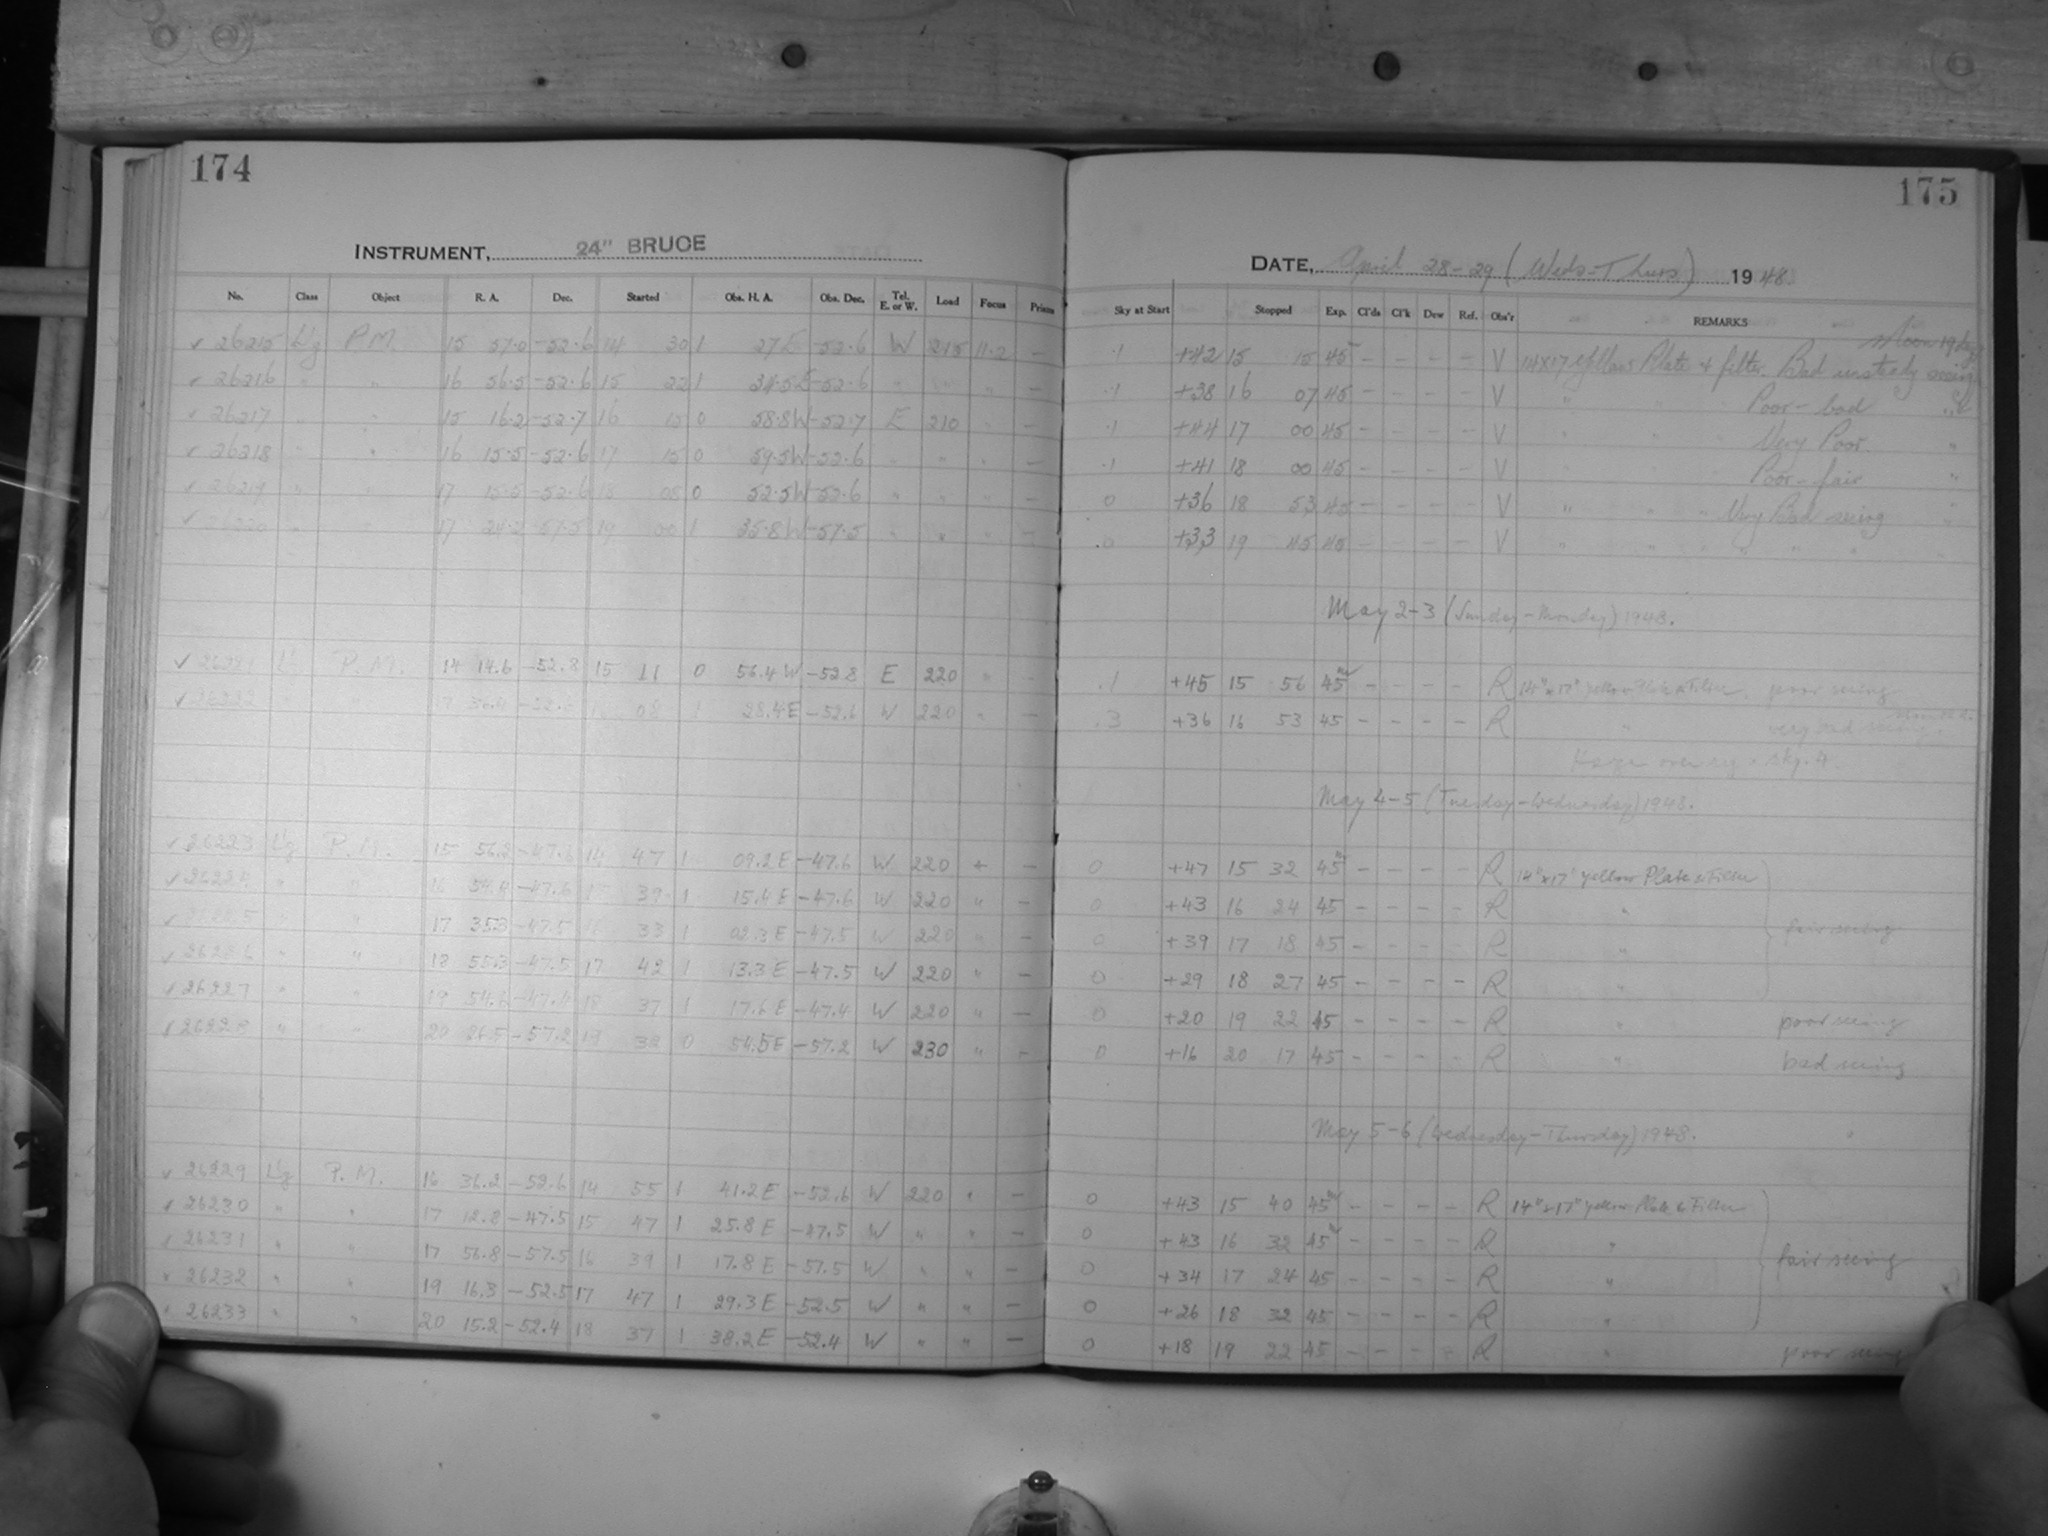 174
INSTRUMENT, 24" BRUCE
No. Class Object R. A. Dec. Started Obs. H. A. Obs. Dec. Tel. E. or W. Load Focus Prism
✓ 26215 P.M. 15 57.0 -52.6 14 30 1 27 E -52.6 W 215 11.2 —
✓ 26216 " " 16 56.5 -52.6 15 22 1 34.5 E -52.6 "
✓ 26217 " " 15 16.2 -52.7 16 15 0 58.8 W -52.7 E 210 " —
✓ 26218 " " 16 15.5 -52.6 17 15 0 59.5 W -52.6 " " " —
✓ 26219 " " 17 15.5 -52.6 18 08 0 52.5 W -52.6 " " " —
✓ 26220 17 24.2 -57.5 19 00 1 35.8 W -57.5 " " " —
✓ 26221 P.M. 14 14.6 -52.8 15 11 0 56.4 W -52.8 E 220 " -
✓ 26222 08 1 28.4 E -52.6 W 220 " -
✓ 26223 P.M. 15 56.2 -47.6 14 47 1 09.2 E -47.6 W 220 —
✓ 26224 " " 16 54.4 -47.6 15 39 1 15.4 E -47.6 W 220 " —
✓ 26225 " " 17 35.3 -47.5 16 33 1 02.3 E -47.5 W 220 " -
✓ 26226 " " 18 55.3 -47.5 17 42 1 13.3 E -47.5 W 220 " —
✓ 26227 " " 19 54.6 -47.4 18 37 1 17.6 E -47.4 W 220 " —
✓ 26228 " " 20 26.5 -57.2 19 32 0 54.5 E -57.2 W 230 " -
✓ 26229 P.M. 16 36.2 -52.6 14 55 1 41.2 E -52.6 W 220 " —
✓ 26230 " " 17 12.8 -47.5 15 47 1 25.8 E -47.5 W " " —
✓ 26231 " " 17 56.8 -57.5 16 39 1 17.8 E -57.5 W " " —
✓ 26232 " " 19 16.3 -52.5 17 47 1 29.3 E -52.5 W " " —
✓ 26233 " " 20 15.2 -52.4 18 37 1 38.2 E -52.4 W " " —
175
DATE, April 28-29 (Weds-Thurs) 1948
Sky at Start Stopped Exp. Cl'ds Cl'k Dew Ref. Obs'r REMARKS
Moon 19 day
.1 +42 15 15 45 - - - - V 14x17 Yellow Plate + filter. Bad unsteady seeing
.1 +38 16 07 45 - - - - V " Poor-bad "
.1 +44 17 00 45 - - - - V " Very Poor. "
.1 +41 18 00 45 - - - - V Poor-fair "
0 +36 18 53 45 - - - - V " " Very Bad seeing "
.0 +33 19 45 45 - - - - V " " " " " "
May 2-3 (Sunday-Monday) 1948.
.1 +45 15 56 45 - - - - R 14"x17" yellow Plate & Filter. poor seeing
.3 +36 16 53 45 - - - - R " very bad seeing.
Haze over sky.
May 4-5 (Tuesday-Wednesday) 1948.
0 +47 15 32 45 - - - - R 14"x17" yellow Plate & Filter
0 +43 16 24 45 - - - - R "
0 +39 17 18 45 - - - - R " fair seeing
0 +29 18 27 45 - - - - R "
0 +20 19 22 45 - - - - R " poor seeing
0 +16 20 17 45 - - - - R " bad seeing
May 5-6 (Wednesday-Thursday) 1948.
0 +43 15 40 45 - - - - R 14"x17" yellow Plate & Filter
0 +43 16 32 45 - - - - R "
0 +34 17 24 45 - - - - R " fair seeing
0 +26 18 32 45 - - - - R "
0 +18 19 22 45 - - - - R " poor seeing